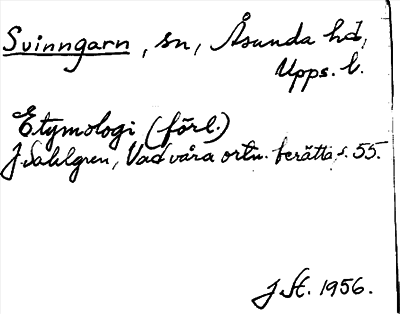 Svinngarn, sn, Åsunda hd,
Upps. l.
Etymologi (förl.)
J Sahlgren, Vad våra ortn. berätta, s. 55.
J. St. 1956.